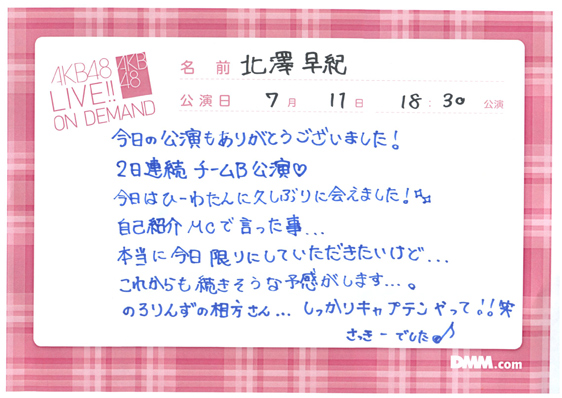 AKB48
LIVE!!
ON DEMAND
AKB
48
名前 北澤 早紀
公演日 7月 11日 18:30 公演
今日の公演もありがとうございました!
2日連続 チームB公演♡
今日はひーわたんに久しぶりに会えました!
自己紹介MCで言った事...
本当に今日限りにしていただきたいけど...
これからも続きそうな予感がします...。
のろりんずの相方さん... しっかりキャプテンやって!!笑
さっきーでした♪
DMM.com